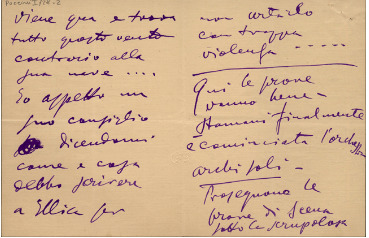 Puccini I/14.2
viene qua e trova
tutto questo vento
contrario alla
sua neve ....
Io aspetto un
suo consiglio
dicendomi
come e cosa
debbo scrivere
a Ellica per
non urtarlo
con troppa
violenza .....
Qui le prove
vanno bene -
Stamani finalmente
è cominciata l'orchestra
archi soli -
Proseguono le
prove di scena
sotto la scrupolosa